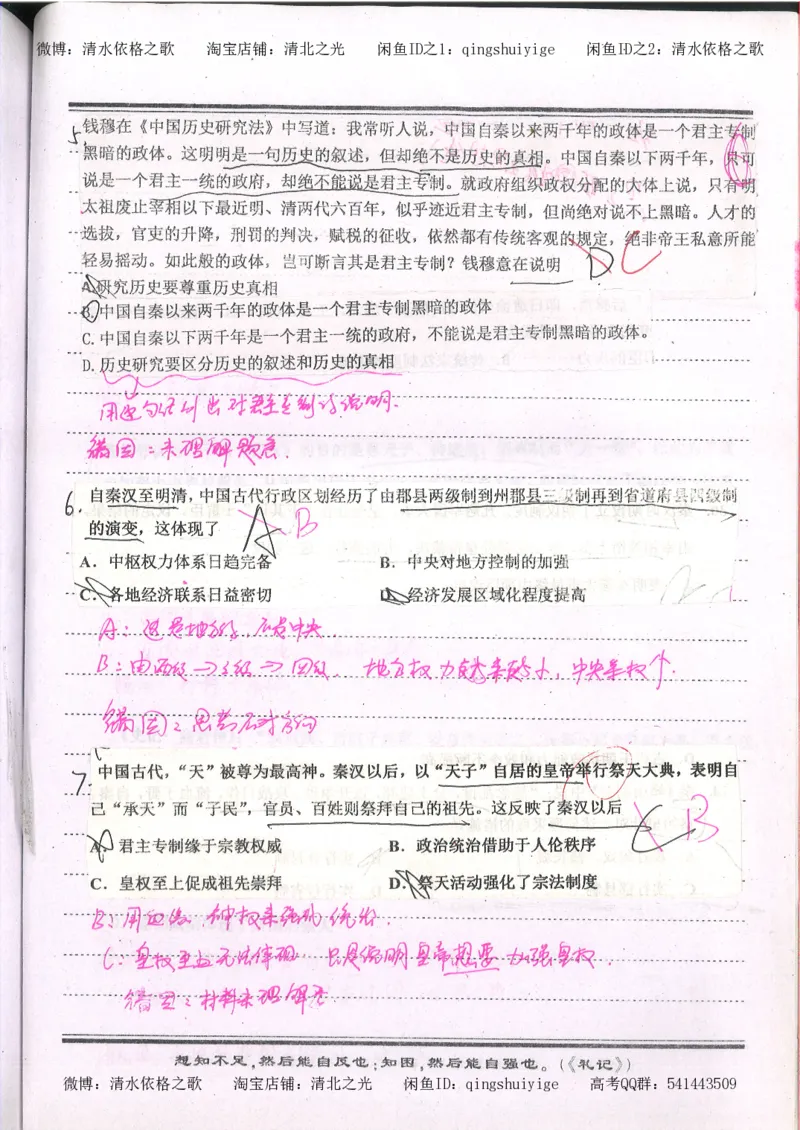 微博：清水依格之歌 淘宝店铺：清北之光 闲鱼ID之1：qingshuiyige 闲鱼ID之2：清水依格之歌
5 钱穆在《中国历史研究法》中写道：我常听人说，中国自秦以来两千年的政体是一个君主专制
黑暗的政体。这明明是一句历史的叙述，但却绝不是历史的真相。中国自秦以下两千年，只可
说是一个君主一统的政府，却绝不能说是君主专制。就政府组织政权分配的大体上说，只有明
太祖废止宰相以下最近明、清两代六百年，似乎迹近君主专制，但尚绝对说不上黑暗。人才的
选拔，官吏的升降，刑罚的判决，赋税的征收，依然都有传统客观的规定，绝非帝王私意所能
轻易摇动。如此般的政体，岂可断言其是君主专制？钱穆意在说明 D C
A.研究历史要尊重历史真相
B.中国自秦以来两千年的政体是一个君主专制黑暗的政体
C.中国自秦以下两千年是一个君主一统的政府，不能说是君主专制黑暗的政体。
D.历史研究要区分历史的叙述和历史的真相
错因：未理解题意.
6. 自秦汉至明清，中国古代行政区划经历了由郡县两级制到州郡县三级制再到省道府县四级制
的演变，这体现了 A B
A．中枢权力体系日趋完备 B．中央对地方控制的加强
C．各地经济联系日益密切 D．经济发展区域化程度提高
A：这是地方，不是中央
B：由两级→3级→四级，地方权力越来越小，中央集权↑.
错因：思考不对方向
7. 中国古代，“天”被尊为最高神。秦汉以后，以“天子”自居的皇帝举行祭天大典，表明自
己“承天”而“子民”，官员、百姓则祭拜自己的祖先。这反映了秦汉以后 C B
A．君主专制缘于宗教权威 B．政治统治借助于人伦秩序
C．皇权至上促成祖先崇拜 D．祭天活动强化了宗法制度
B：用血缘、神权来强化统治.
C：皇权至上无法体现 只是说明皇帝想要加强皇权.
错因：材料未理解
想知不足,然后能自反也;知困,然后能自强也。(《礼记》)
微博：清水依格之歌 淘宝店铺：清北之光 闲鱼ID：qingshuiyige 高考QQ群：541443509